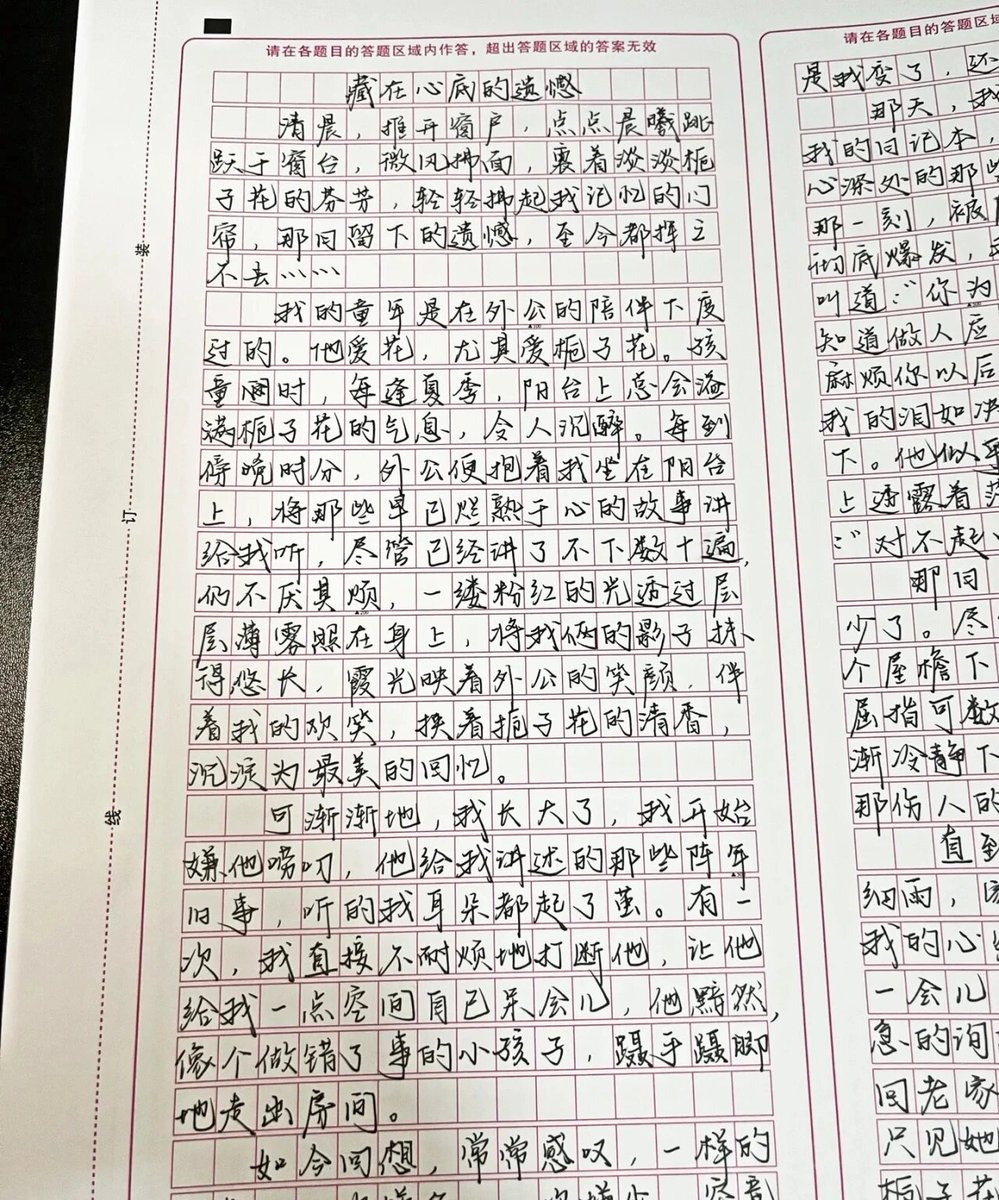 请在各题目的答题区域内作答，超出答题区域的答案无效
藏在心底的遗憾
清晨，推开窗户，点点晨曦跳
跃于窗台，微风拂面，裹着淡淡栀
子花的芬芳，轻轻拂起我记忆的门
帘，那回留下的遗憾，至今都挥之
不去……
我的童年是在外公的陪伴下度
过的。他爱花，尤其爱栀子花。孩
童时，每逢夏季，阳台上总会溢
满栀子花的气息，令人沉醉。每到
傍晚时分，外公便抱着我坐在阳台
上，将那些早已烂熟于心的故事讲
给我听，尽管已经讲了不下数十遍，
仍不厌其烦，一缕粉红的光透过层
层薄雾照在身上，将我俩的影子
得悠长，霞光映着外公的笑颜，伴
着我的欢笑，挟着栀子花的清香，
沉淀为最美的回忆。
可渐渐地，我长大了，我开始
嫌他唠叨，他给我讲述的那些陈年
旧事，听的我耳朵都起了茧。有一
次，我直接不耐烦地打断他，让他
给我一点空间自己呆会儿，他黯然，
像个做错了事的小孩子，蹑手蹑脚
地走出房间。
如今回想，常常感叹，一样的
装
订
线
请在各题目的答题区
是我变了，还
那天，我
我的日记本，
心深处的那些
那一刻，被
彻底爆发，
叫道：“你为
知道做人应
麻烦你以后
我的泪如决
下。他似
上透露着
：“对不起
那回
少了。尽
个屋檐下
屈指可数
渐冷静下
那伤人的
直至
细雨，
我的心
一会儿
急的询
回老家
只见她
栀子花